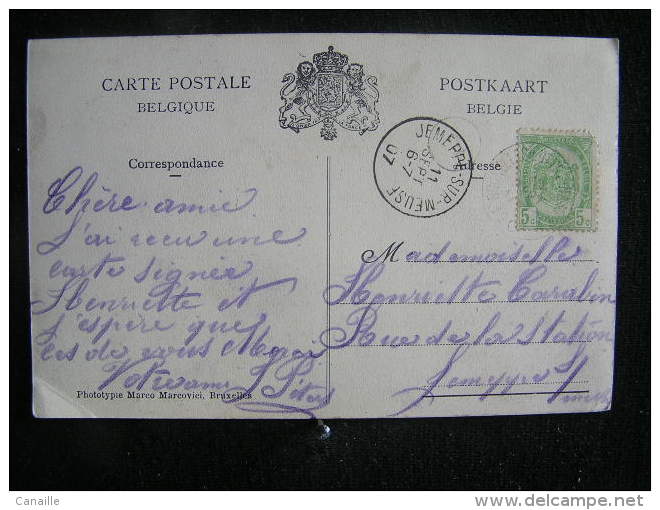 CARTE POSTALE
BELGIQUE
POSTKAART
BELGIE
Correspondance
Adresse
JEMEPPE-SUR-MEUSE
11
SEPT
6-7
07
5c 5c
Chère amie
J'ai recu une
carte signée
Henriette et
j'espère que
c'es de vous Merci
Votre amie J.
Mademoiselle
Henriette
Rue de la Station
Jemeppe s/
Phototypie Marco Marcovici, Bruxelles
Canaille
delcampe.net